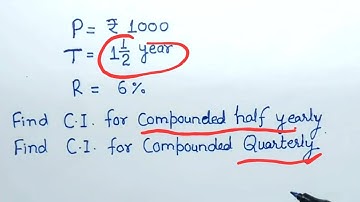 P = ₹ 1000
T = 1 1/2 year
R = 6%
Find C.I. for Compounded half yearly
Find C.I. for Compounded Quarterly